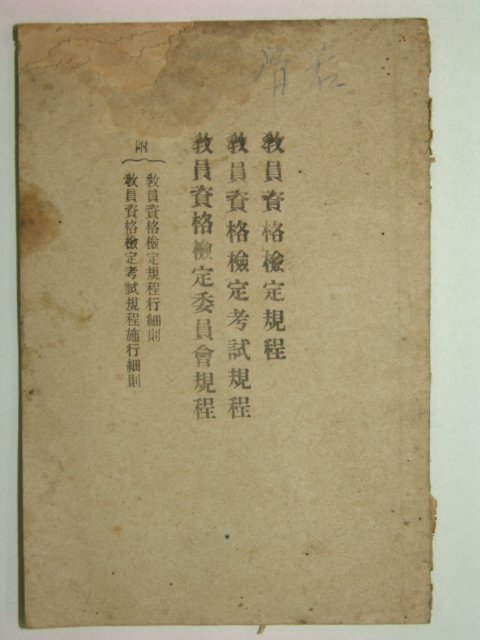 教員資格檢定規程
教員資格檢定考試規程
教員資格檢定委員會規程
附
教員資格檢定規程行細則
教員資格檢定考試規程施行細則